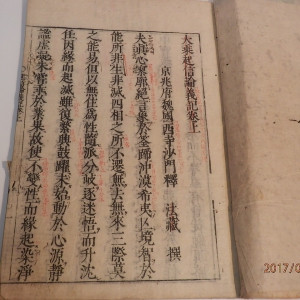 大乘起信論義記卷上
京兆府魏國西寺沙門釋 法藏 撰
夫真心寥廓絕言象於筌蹄沖漠希夷亡境智於
能所非生非滅四相之所不遷無去無來三際莫
之能易但以無住為性隨派分岐逐迷悟而升沈
任因緣而起滅雖復繁興鼓躍未始動於心源靜
謐虛凝未嘗乖於業果故使不變性而緣起染淨
2017/0